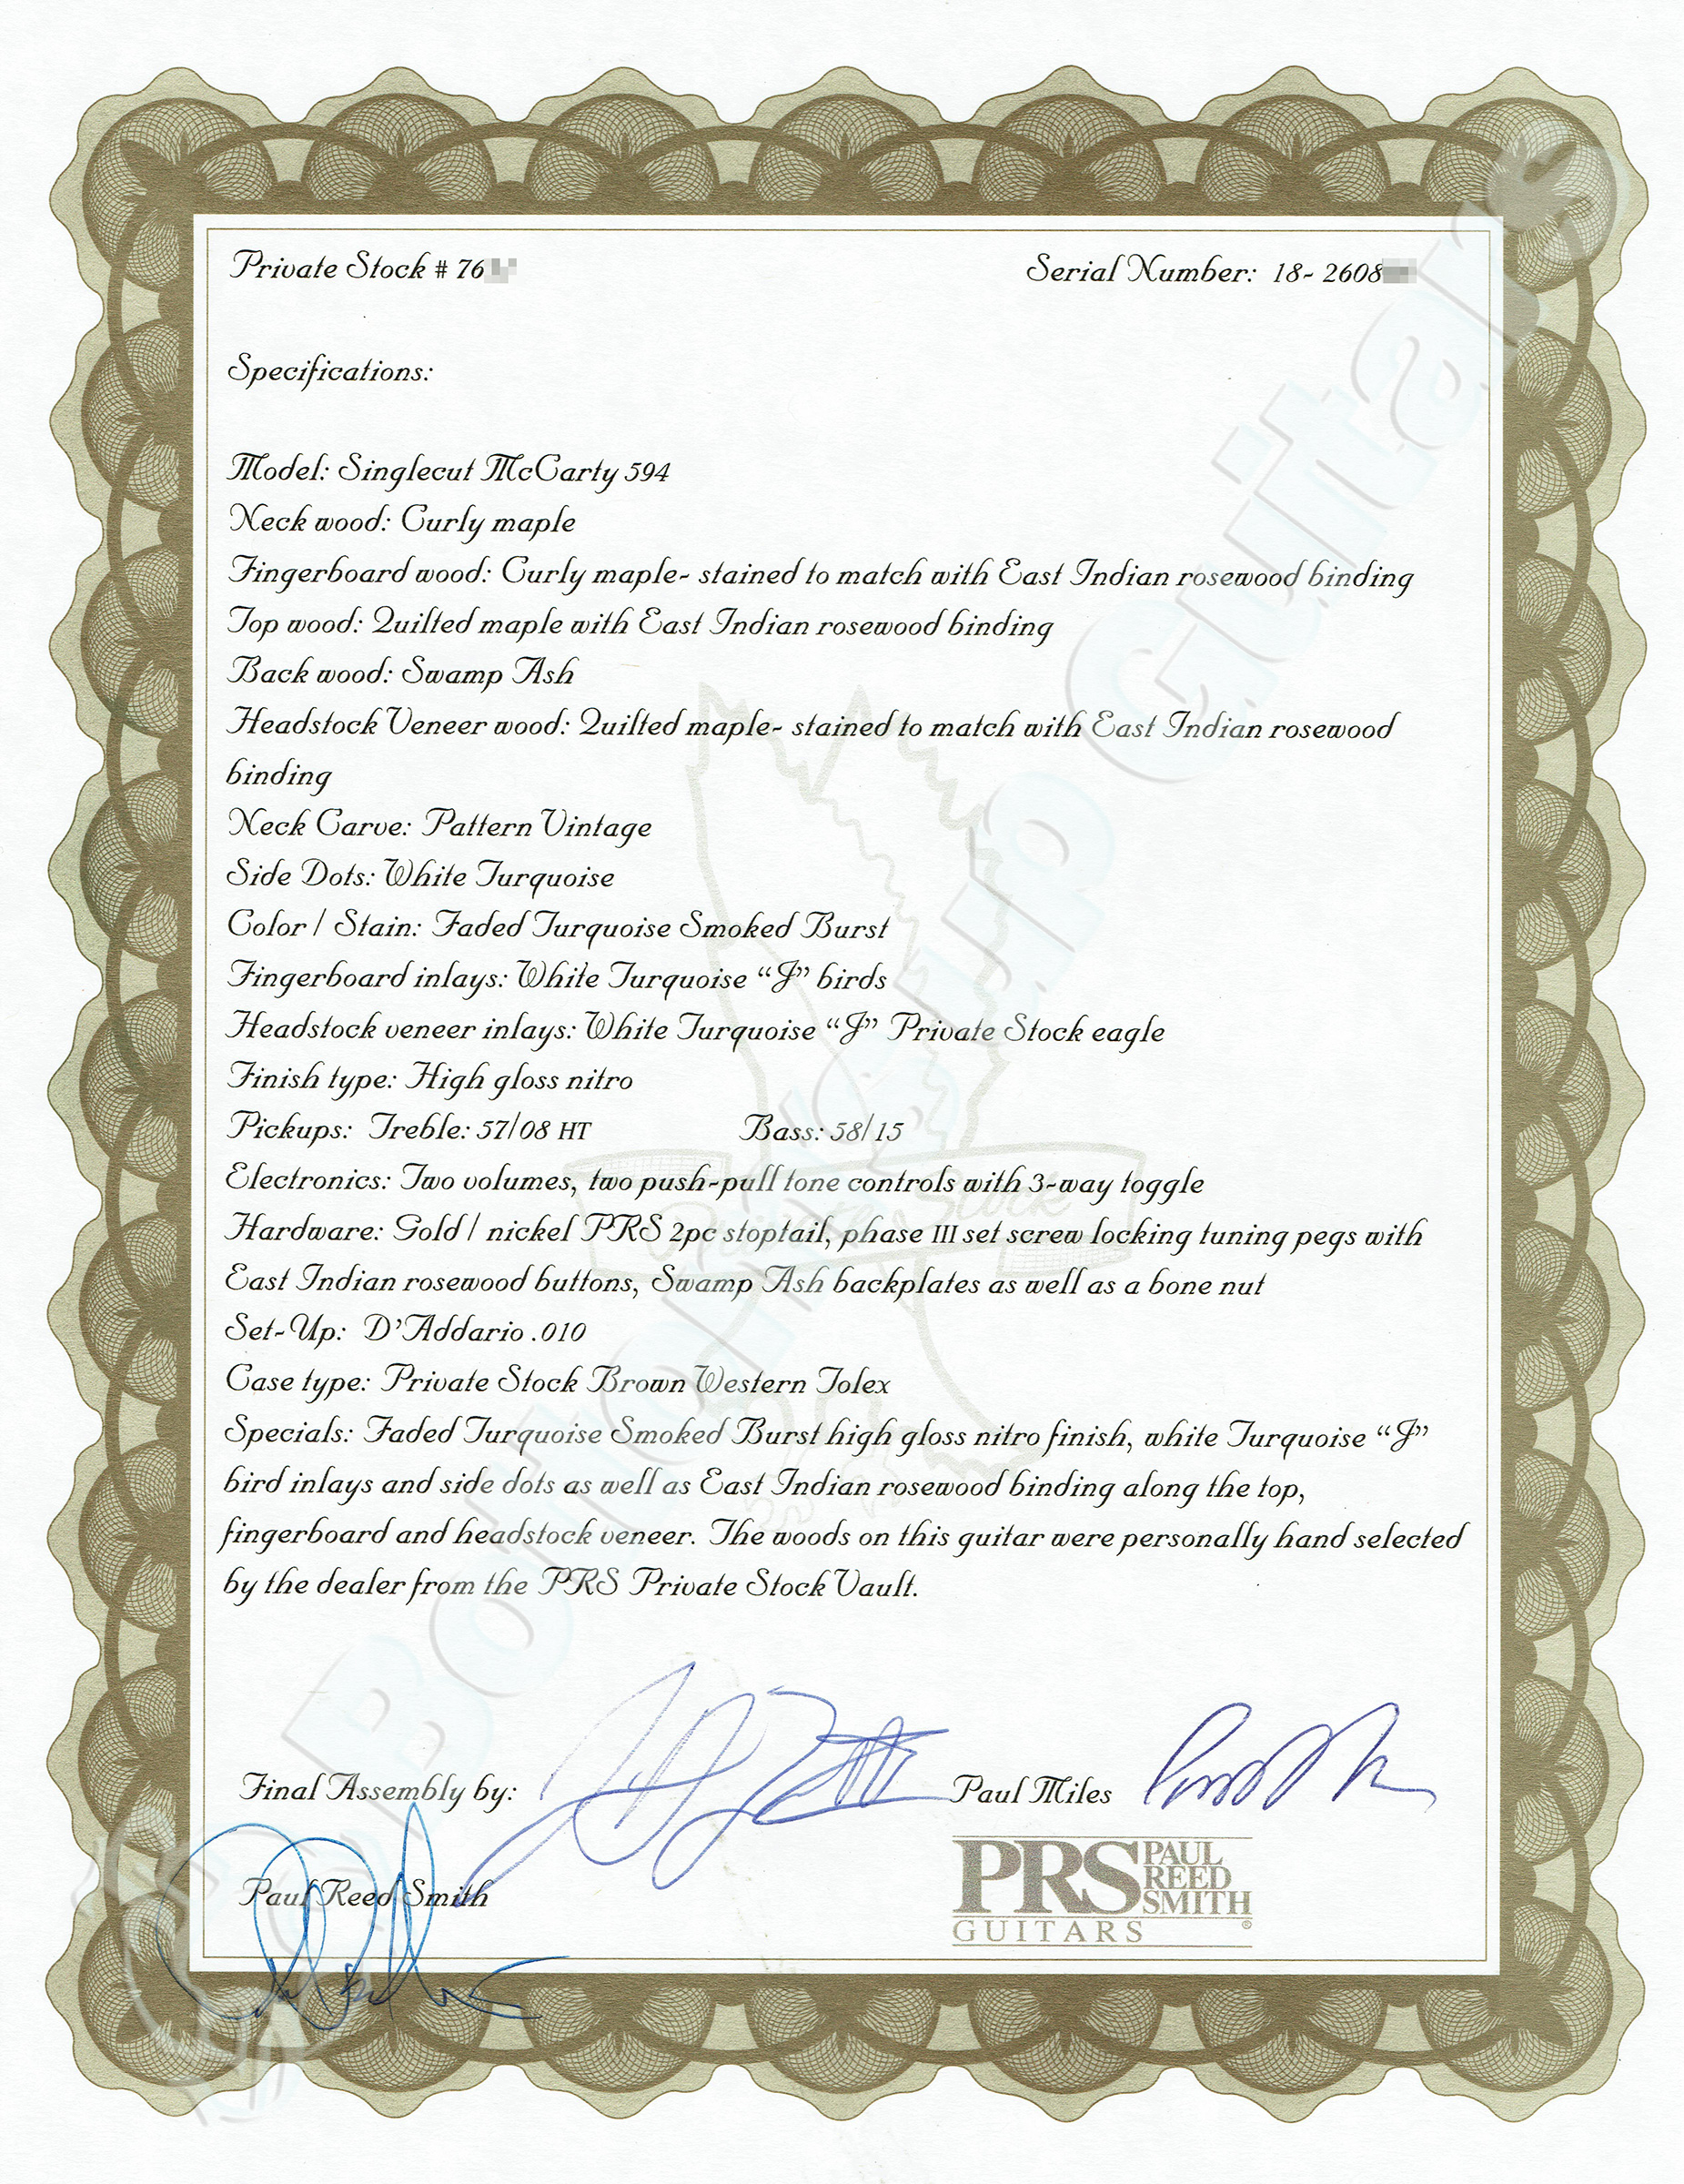 Private Stock # 76
Serial Number: 18- 2608
Specifications:
Model: Singlecut McCarty 594
Neck wood: Curly maple
Fingerboard wood: Curly maple- stained to match with East Indian rosewood binding
Top wood: Quilted maple with East Indian rosewood binding
Back wood: Swamp Ash
Headstock Veneer wood: Quilted maple- stained to match with East Indian rosewood
binding
Neck Carve: Pattern Vintage
Side Dots: White Turquoise
Color / Stain: Faded Turquoise Smoked Burst
Fingerboard inlays: White Turquoise “J” birds
Headstock veneer inlays: White Turquoise “J” Private Stock eagle
Finish type: High gloss nitro
Pickups: Treble: 57/08 HT Bass: 58/15
Electronics: Two volumes, two push-pull tone controls with 3-way toggle
Hardware: Gold / nickel PRS 2pc stoptail, phase III set screw locking tuning pegs with
East Indian rosewood buttons, Swamp Ash backplates as well as a bone nut
Set-Up: D’Addario .010
Case type: Private Stock Brown Western Tolex
Specials: Faded Turquoise Smoked Burst high gloss nitro finish, white Turquoise “J”
bird inlays and side dots as well as East Indian rosewood binding along the top,
fingerboard and headstock veneer. The woods on this guitar were personally hand selected
by the dealer from the PRS Private Stock Vault.
Final Assembly by:
Paul Miles
Paul Reed Smith
PRS PAUL
REED
SMITH
GUITARS ®